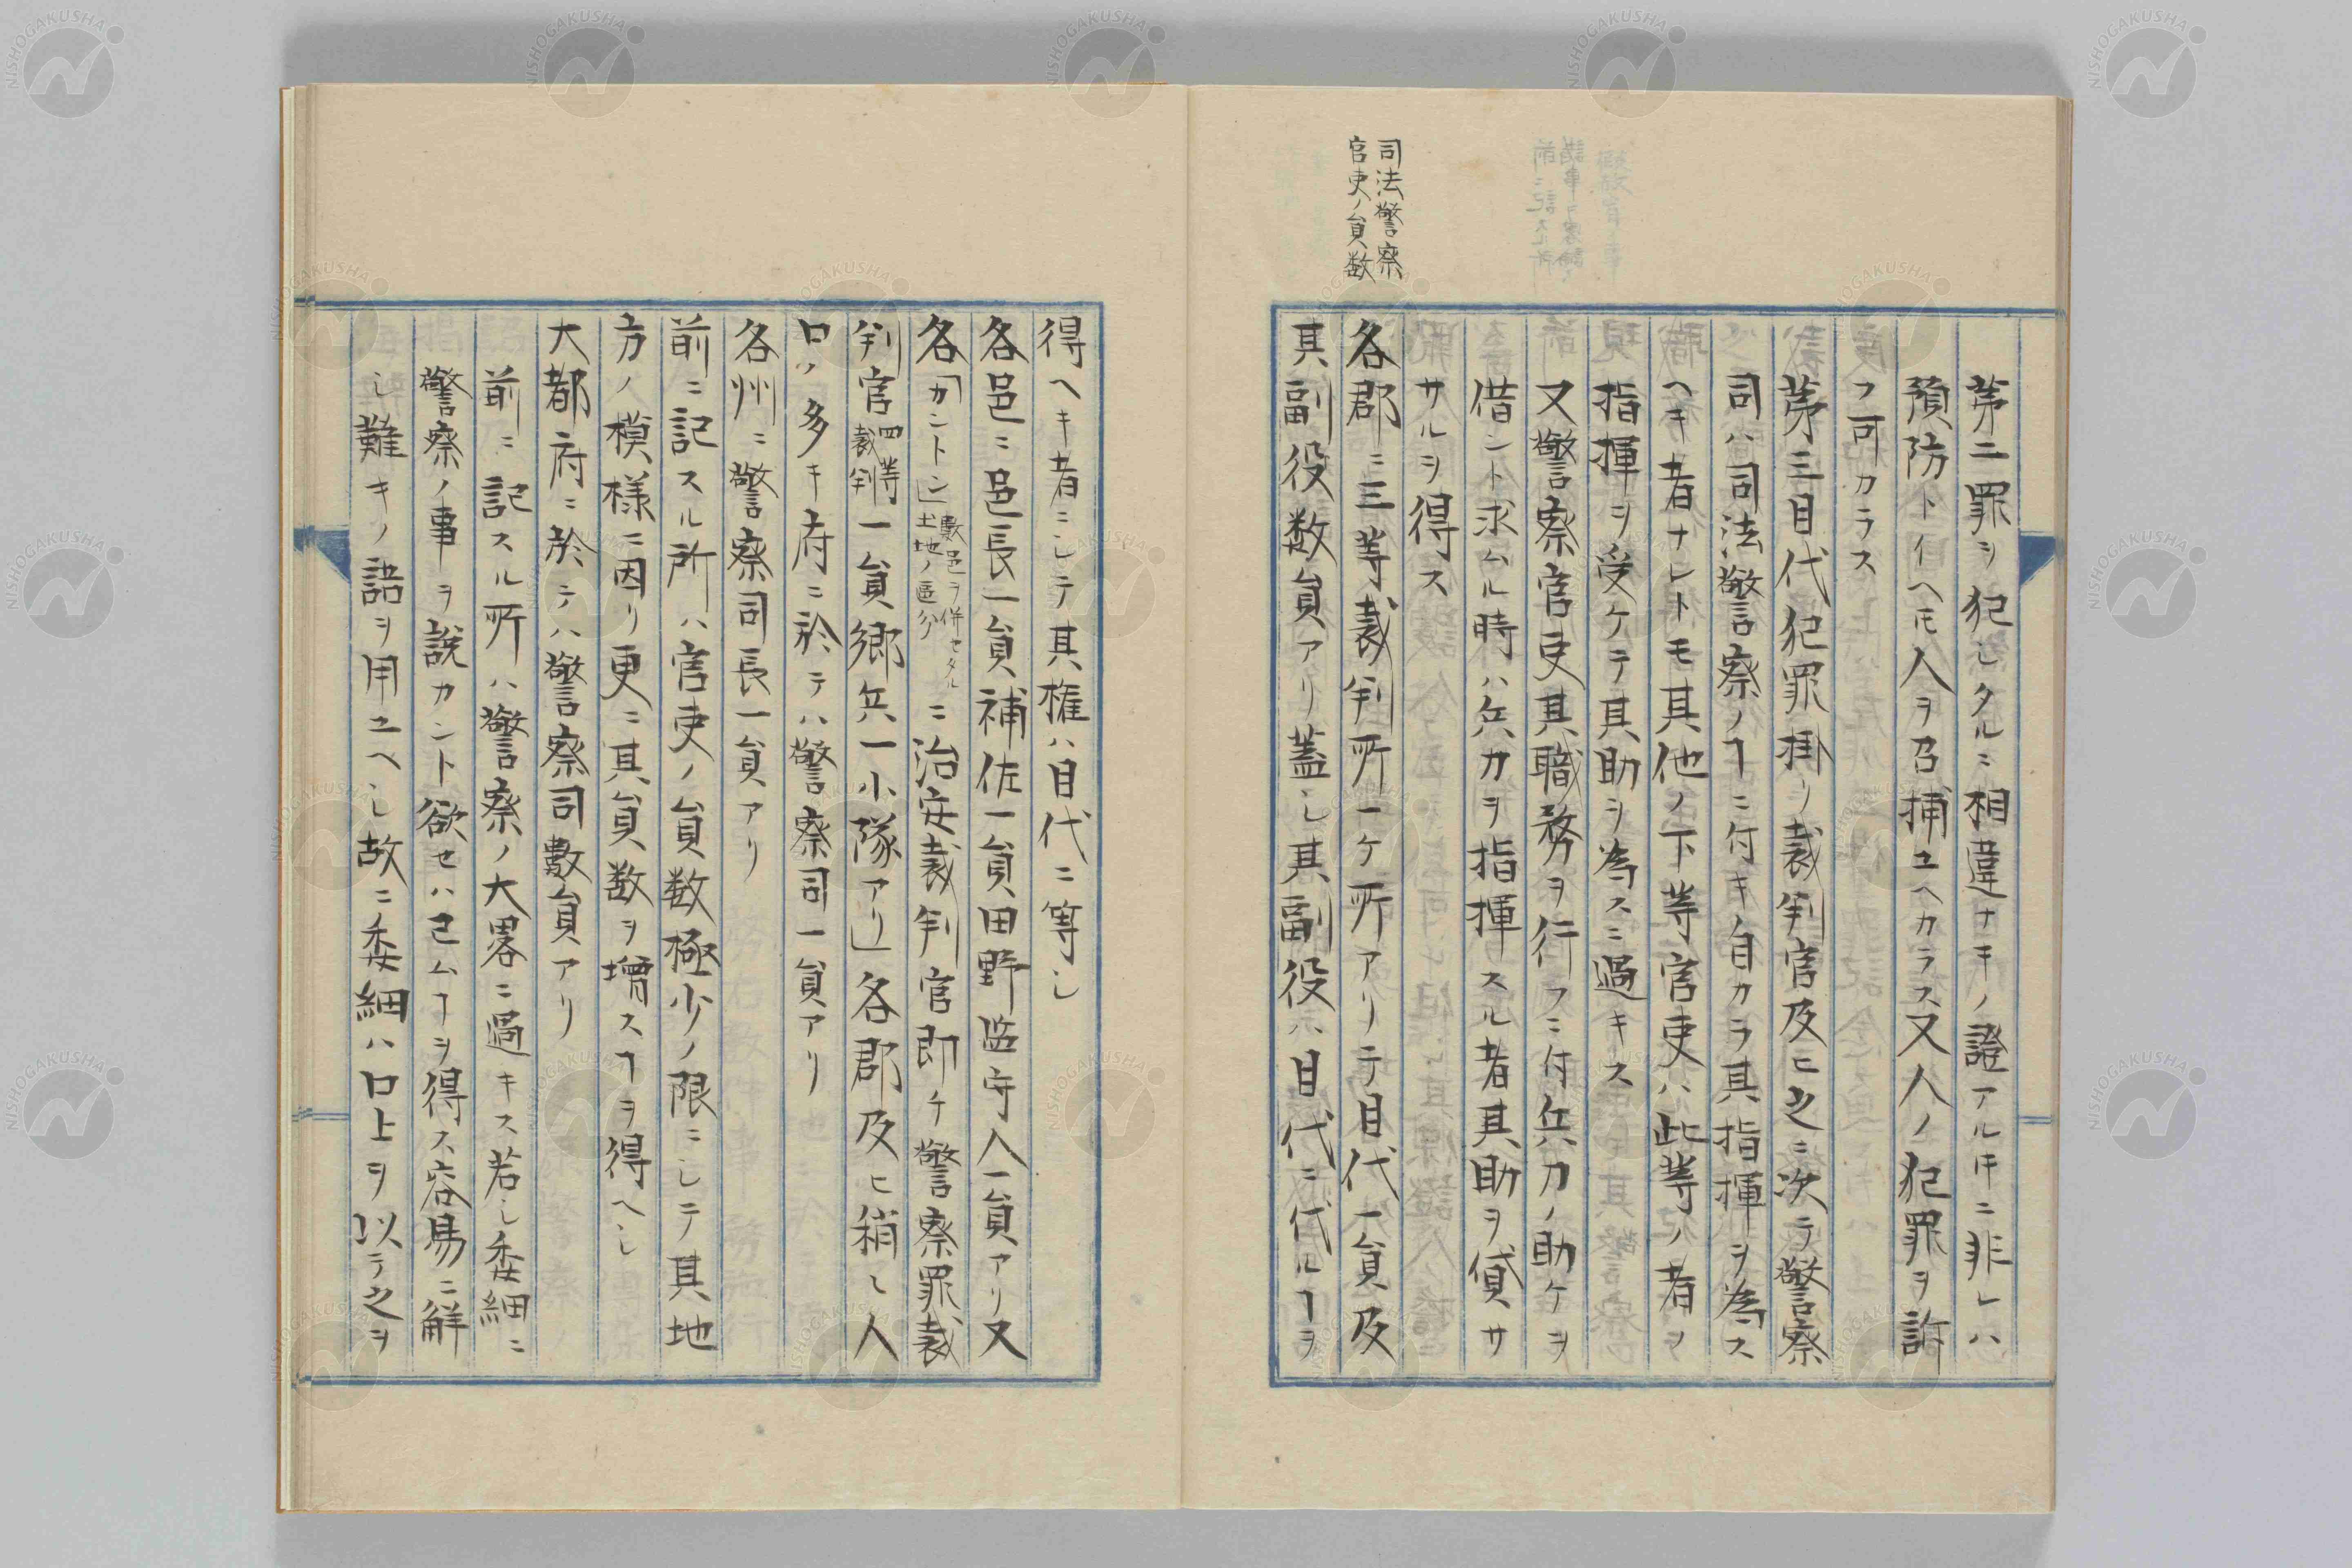 司法警察
官吏ノ員数
第二罪ヲ犯シタルニ相違ナキノ證アル𪜈ニ非レハ
預防トイヘ𪜈人ヲ召捕ユヘカラス又人ノ犯罪ヲ訴
フ可カラス
第三目代犯罪掛リ裁判官及ヒ之ニ次テ警察
司ハ司法警察ノヿニ付キ自カラ其指揮ヲ為ス
ヘキ者ナレトモ其他ノ下等官吏ハ此等ノ者ノ
指揮ヲ受ケテ其助ヲ為スニ過キス
又警察官吏其職務ヲ行フニ付兵力ノ助ケヲ
借ント求ムル時ハ兵力ヲ指揮スル者其助ヲ貸サ
サルヲ得ス
各郡ニ三等裁判所一ケ所アリテ目代一員及
其副役数員アリ蓋シ其副役ハ目代ニ代ルヿヲ
得ヘキ者ニシテ其権ハ目代ニ等シ
各邑ニ邑長一員補佐一員田野監守人一員アリ又
各「カントン」數邑ヲ併セタル土地ノ區分ニ治安裁判官即チ警察罪裁
判官四等裁判一員郷兵一小隊アリ」各郡及ヒ稍〻人
口ノ多キ府ニ於テハ警察司一員アリ
各州ニ警察司長一員アリ
前ニ記スル所ハ官吏ノ員数極少ノ限ニシテ其地
方ノ模様ニ因リ更ニ其員数ヲ増スヿヲ得ヘシ
大都府ニ於テハ警察司數員アリ
前ニ記スル所ハ警察ノ大畧ニ過キス若シ委細ニ
警察ノ事ヲ說カント欲セハ已ムヿヲ得ス容易ニ解
シ難キノ語ヲ用ユヘシ故ニ委細ハ口上ヲ以テ之ヲ
NISHOGAKUSHA